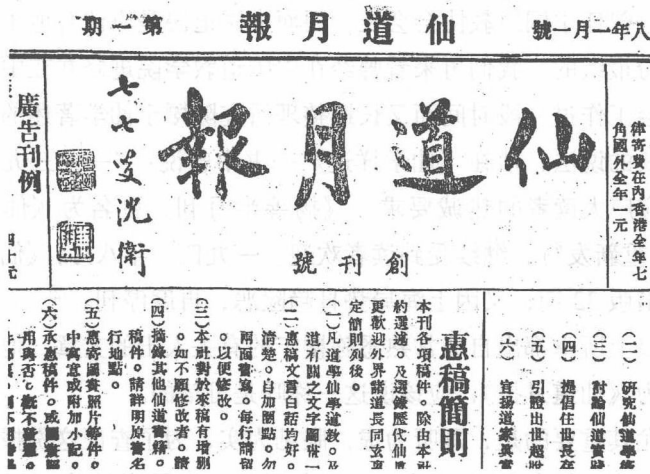 八年一月一號
仙道月報
第一期
郵寄費在內香港全年七
角國外全年一元
仙道月報
七七叟沈衛
創刊號
廣告刊例
(二)研究仙道學術
(三)討論仙道實
(四)提倡住世長
(五)引證出世超
(六)宣揚道家真
惠稿簡則
本刊各項稿件。除由本社
約選述。及選錄歷代仙
更歡迎外界諸道長同玄
定簡則列後。
(一)凡道學仙學道教。及
道有關之文字圖
(二)惠稿文言白話均好。
清楚。自加圈點。勿
兩面書寫。每行請留
。以便修改。
(三)本社對於來稿有增刪
。如不願修改者。請
(四)摘錄其他仙道書籍。
稿件。請詳明原書名
行地點。
(五)惠寄圖畫照片等件。
中寓意或附加小記。
(六)承惠稿件。或圖畫照
用與否。概不退還。